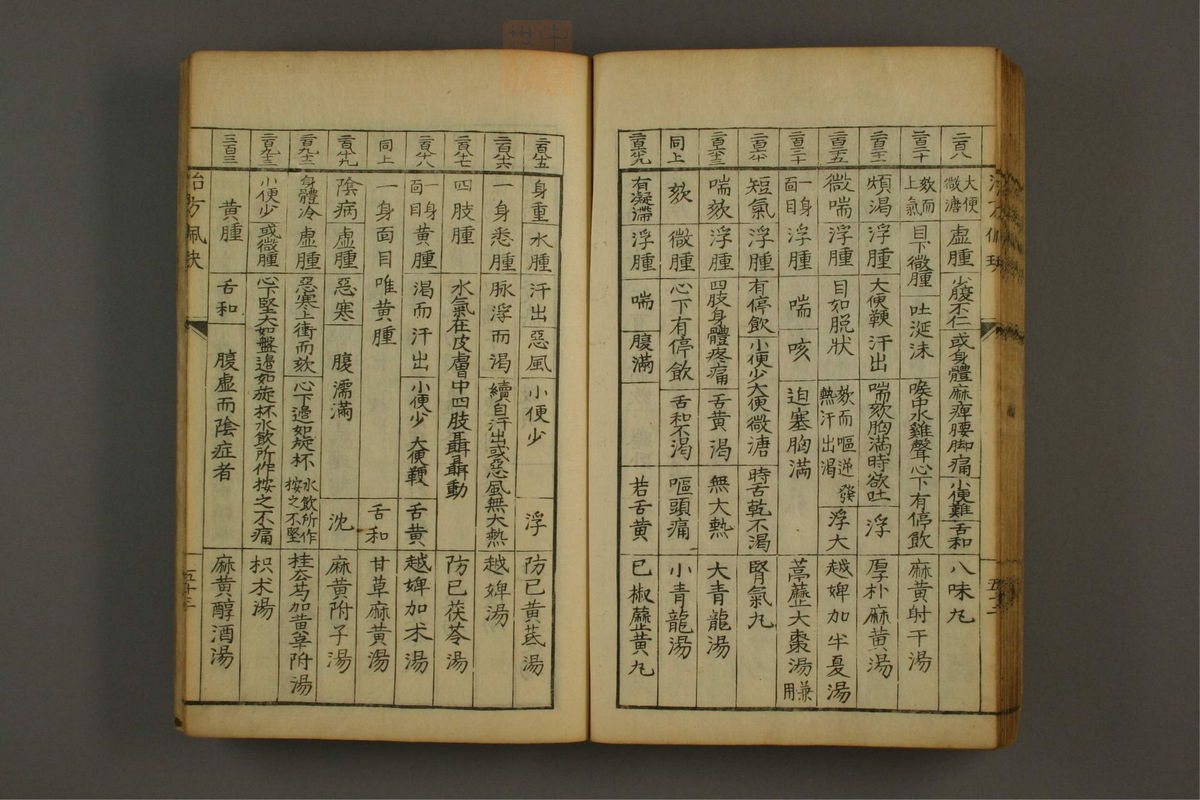 二百八 大便微溏 虛腫 小腹不仁或身體麻痺腰脚痛 小便難 舌和 八味丸
欬而上氣 目下微腫 吐涎沫 喉中水雞聲心下有停飲 麻黄射干湯
煩渴 浮腫 大便鞕 汗出 喘欬胸滿時欲吐 浮 厚朴麻黄湯
微喘 浮腫 目如脱狀 欬而嘔逆發熱汗出渴 浮大 越婢加半夏湯
一身面目 浮腫 喘 咳 迫塞胸滿 葶藶大棗湯兼用
短氣 浮腫 有停飲 小便少大便微溏 時舌乾不渴 腎氣丸
喘欬 浮腫 四肢身體疼痛 舌黄渇 無大熱 大青龍湯
同上 欬 微腫 心下有停飲 舌和不渇 嘔頭痛 小青龍湯
有凝滯 浮腫 喘 腹滿 若舌黄 已椒藶黄丸
身重 水腫 汗出 惡風 小便少 浮 防已黄芪湯
一身悉腫 脉浮而渴 續自汗出或惡風無大熱 越婢湯
四肢腫 水氣在皮膚中四肢聶聶動 防已茯苓湯
一身面目 黄腫 渴而汗出 小便少 大便鞕 舌黄 越婢加术湯
同上 一身面目唯黄腫 舌和 甘草麻黄湯
陰病 虛腫 惡寒 腹濡滿 沈 麻黄附子湯
身體冷 虛腫 惡寒上衝而欬 心下邊如旋杯 水飲所作按之不堅 桂去芍加黄辛附湯
小便少 或微腫 心下堅大如盤邉如旋杯水飲所作按之不痛 枳术湯
三百三 黄腫 舌和 腹虛而陰症者 麻黄醇酒湯
治方佩玦 五十三